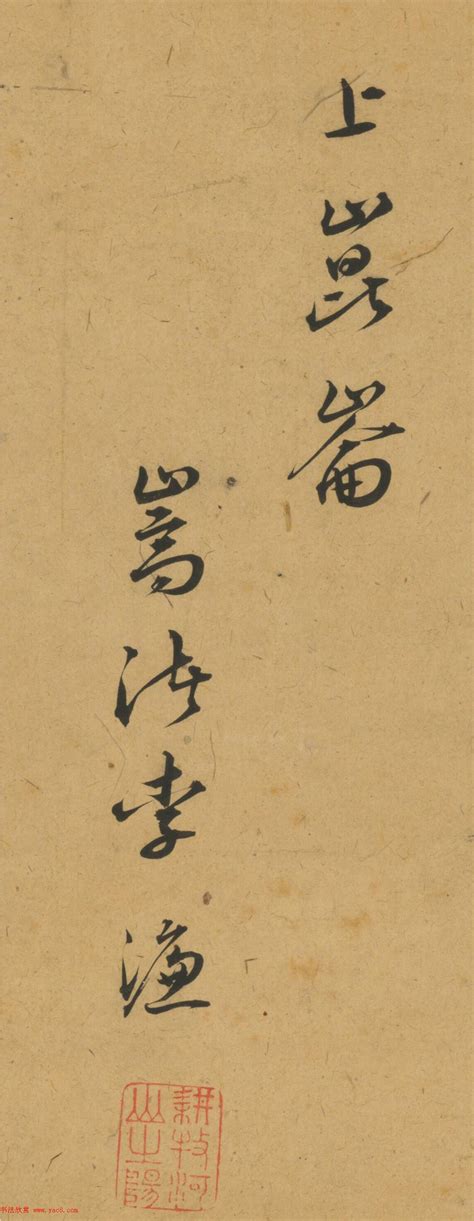 上崑崙
嵩渚李濂
耕牧河
山之陽
书法欣赏 www.yac8.com